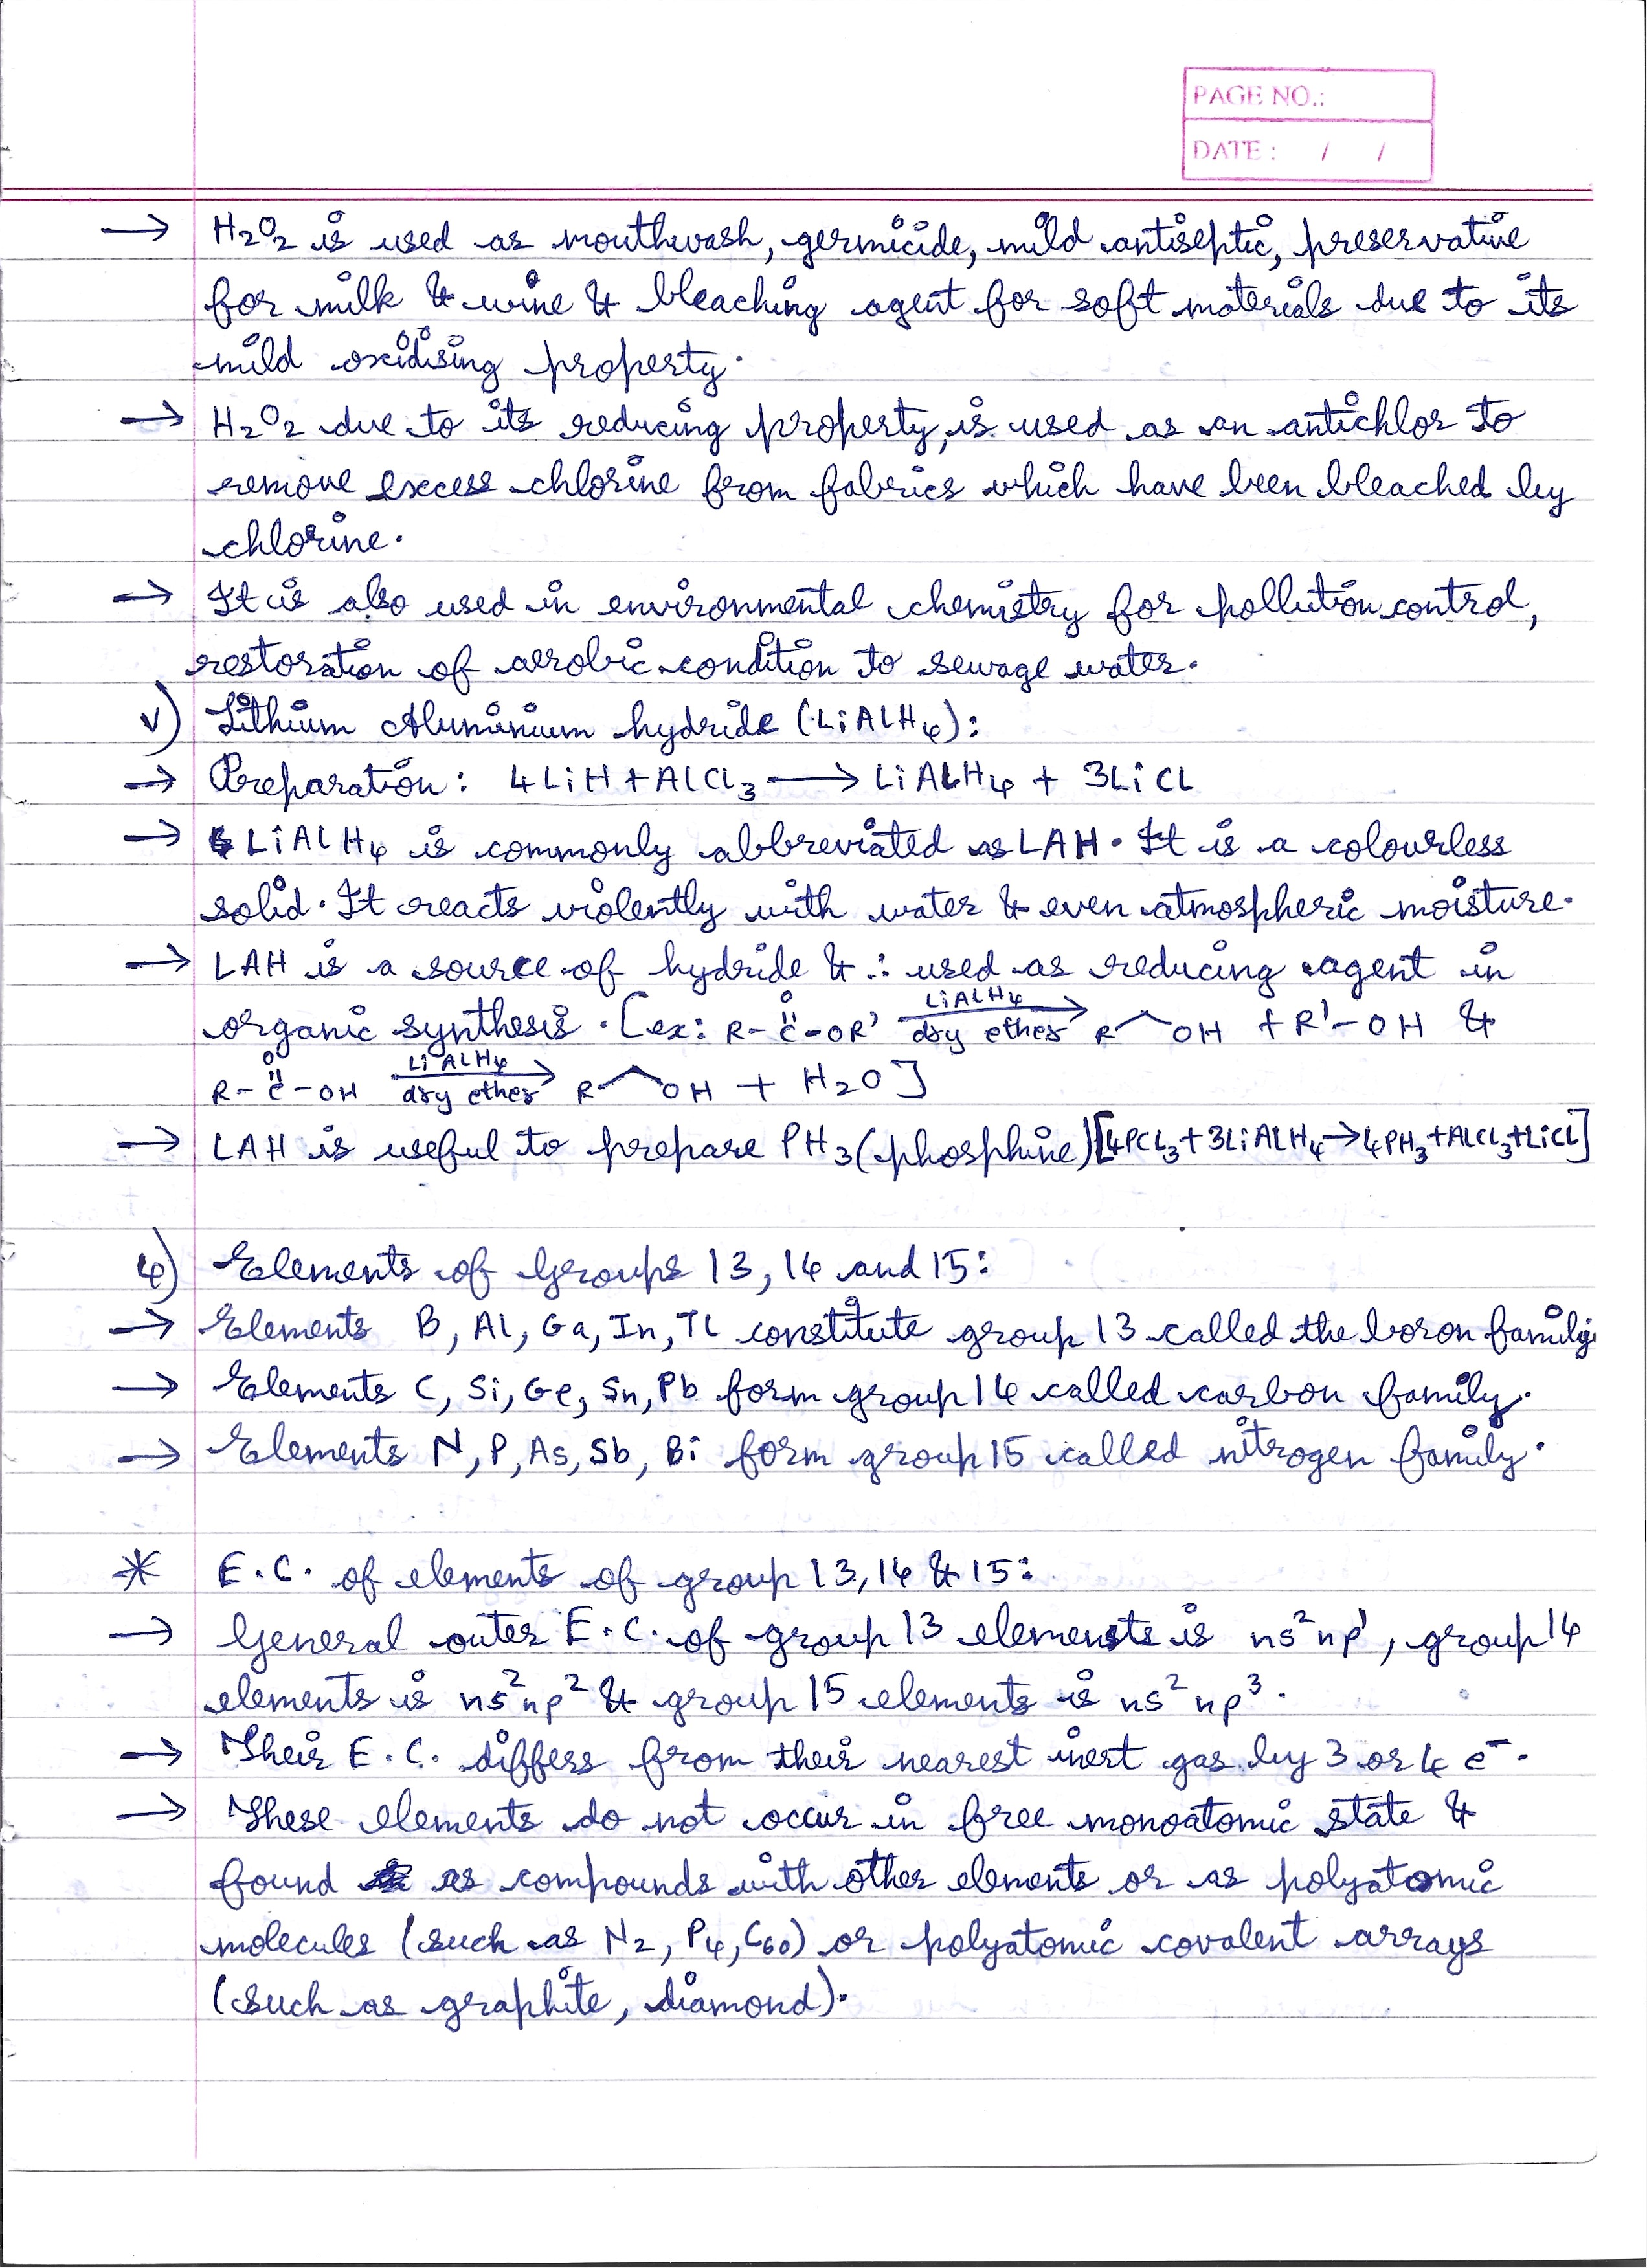 PAGE NO.:
DATE : / /
→ H₂O₂ is used as mouthwash, germicide, mild antiseptic, preservative
for milk & wine & bleaching agent for soft materials due to its
mild oxidising property.
→ H₂O₂ due to its reducing property, is used as an antichlor to
remove excess chlorine from fabrics which have been bleached by
chlorine.
→ It is also used in environmental chemistry for pollution control,
restoration of aerobic condition to sewage water.
v) Lithium Aluminium hydride (LiAlH₄):
→ Preparation: 4LiH + AlCl₃ ⟶ LiAlH₄ + 3LiCl
→ LiAlH₄ is commonly abbreviated as LAH. It is a colourless
solid. It reacts violently with water & even atmospheric moisture.
→ LAH is a source of hydride & ∴ used as reducing agent in
organic synthesis. [ex: R-C(=O)-OR' —LiAlH₄/dry ether→ R⁀OH + R'-OH &
R-C(=O)-OH —LiAlH₄/dry ether→ R⁀OH + H₂O]
→ LAH is useful to prepare PH₃ (phosphine) [4PCl₃+3LiAlH₄→4PH₃+AlCl₃+LiCl]
4) Elements of Groups 13, 14 and 15:
→ Elements B, Al, Ga, In, Tl constitute group 13 called the boron family.
→ Elements C, Si, Ge, Sn, Pb form group 14 called carbon family.
→ Elements N, P, As, Sb, Bi form group 15 called nitrogen family.
* E.C. of elements of group 13, 14 & 15:
→ General outer E.C. of group 13 elements is ns²np¹, group 14
elements is ns²np² & group 15 elements is ns²np³.
→ Their E.C. differs from their nearest inert gas by 3 or 4 e⁻.
→ These elements do not occur in free monoatomic state &
found as compounds with other elements or as polyatomic
molecules (such as N₂, P₄, C₆₀) or polyatomic covalent arrays
(such as graphite, diamond).